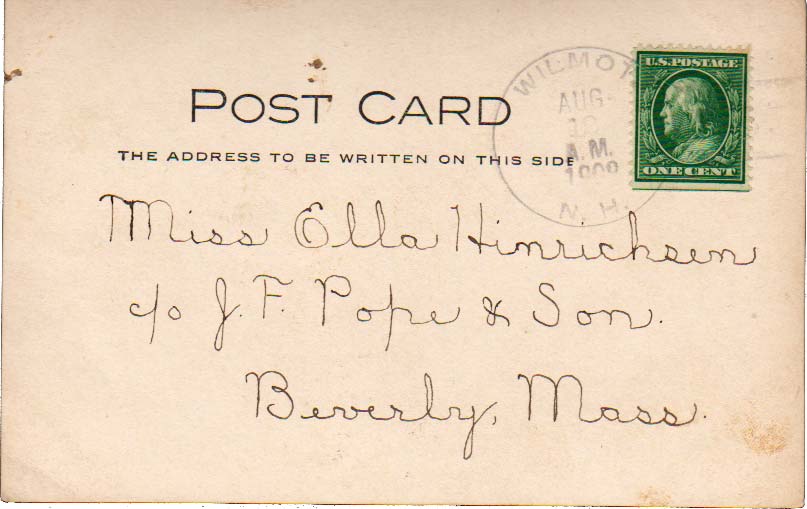 U.S. POSTAGE
WILMOT
POST CARD
AUG
A.M.
THE ADDRESS TO BE WRITTEN ON THIS SIDE
ONE CENT
N.H.
Miss Ella Hinrichsen
c/o J. F. Pope & Son.
Beverly, Mass.